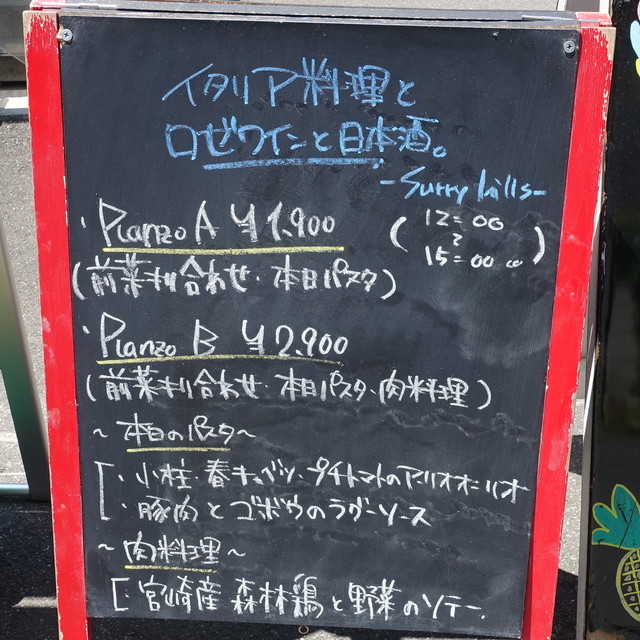 イタリア料理と
ロゼワインと日本酒。
-Surry hills-
・Pranzo A ¥1.900
(12:00
~
15:00 co)
(前菜盛り合わせ・本日パスタ)
・Pranzo B ¥2.900
(前菜盛り合わせ・本日パスタ・肉料理)
~本日のパスタ~
[・小柱・春キャベツ・プチトマトのアーリオオーリオ
・豚肉とゴボウのラグーソース
~肉料理~
[・宮崎産 森林鶏と野菜のソテー.